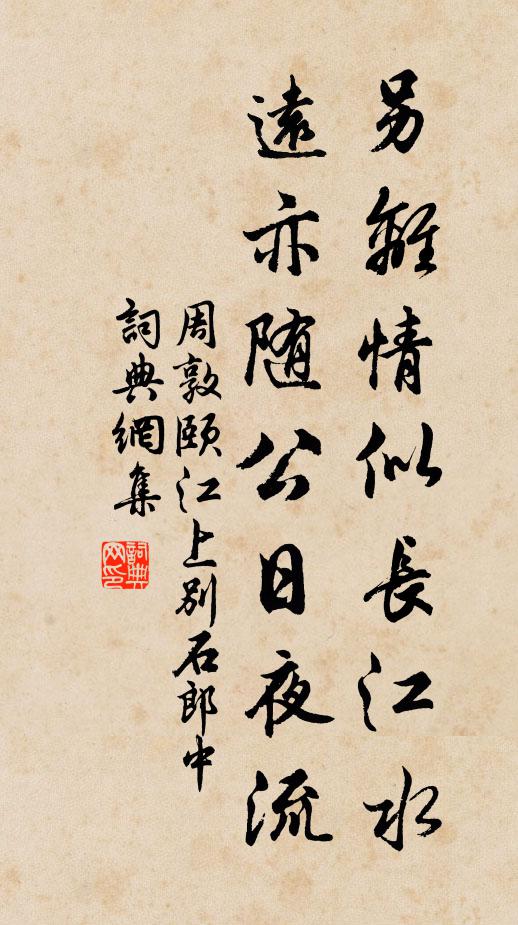 另離情似長江水
遠亦随公日夜流
周敦頤江上別石郎中
詞典網集
詞典网印